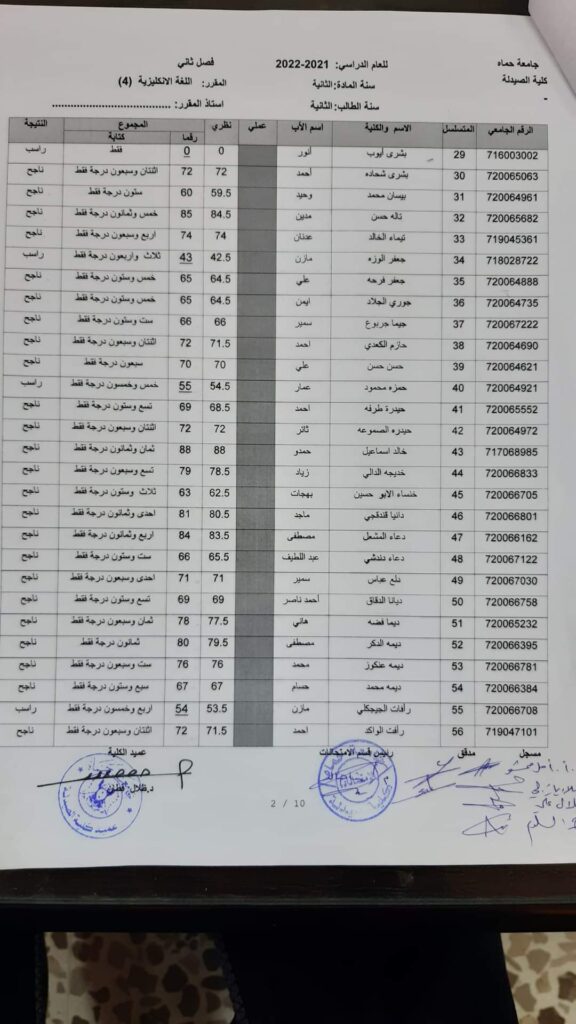 جامعة حماه
كلية الصيدلة
-
للعام الدراسي: 2021-2022 فصل ثاني
سنة المادة: الثانية المقرر: اللغة الانكليزية (4)
سنة الطالب: الثانية استاذ المقرر: ......................................
الرقم الجامعي المتسلسل الاسم والكنية اسم الأب عملي نظري المجموع النتيجة
رقما كتابة
716003002 29 بشرى أيوب أنور 0 0 فقط راسب
720065063 30 بشرى شحاده أحمد 72 72 اثنتان وسبعون درجة فقط ناجح
720064961 31 بيسان محمد وحيد 59.5 60 ستون درجة فقط ناجح
720065682 32 تاله حسن مدين 84.5 85 خمس وثمانون درجة فقط ناجح
719045361 33 تيماء الخالد عدنان 74 74 اربع وسبعون درجة فقط ناجح
718028722 34 جعفر الوزه مازن 42.5 43 ثلاث واربعون درجة فقط راسب
720064888 35 جعفر فرحه علي 64.5 65 خمس وستون درجة فقط ناجح
720064735 36 جوري الجلاد ايمن 64.5 65 خمس وستون درجة فقط ناجح
720067222 37 جيما جربوع سمير 66 66 ست وستون درجة فقط ناجح
720064690 38 حازم الكعدي احمد 71.5 72 اثنتان وسبعون درجة فقط ناجح
720064621 39 حسن حسن علي 70 70 سبعون درجة فقط ناجح
720064921 40 حمزه محمود عمار 54.5 55 خمس وخمسون درجة فقط راسب
720065552 41 حيدرة طرفه احمد 68.5 69 تسع وستون درجة فقط ناجح
720064972 42 حيدره الصموعه ثائر 72 72 اثنتان وسبعون درجة فقط ناجح
717068985 43 خالد اسماعيل حمدو 88 88 ثمان وثمانون درجة فقط ناجح
720066833 44 خديجه الدالي زياد 78.5 79 تسع وسبعون درجة فقط ناجح
720066705 45 خنساء الابو حسين بهجات 62.5 63 ثلاث وستون درجة فقط ناجح
720066801 46 دانيا قندقجي ماجد 80.5 81 احدى وثمانون درجة فقط ناجح
720066162 47 دعاء المشعل مصطفى 83.5 84 اربع وثمانون درجة فقط ناجح
720067122 48 دعاء دندشي عبد اللطيف 65.5 66 ست وستون درجة فقط ناجح
720067030 49 دلع عباس سمير 71 71 احدى وسبعون درجة فقط ناجح
720066758 50 ديانا الدقاق أحمد ناصر 69 69 تسع وستون درجة فقط ناجح
720065232 51 ديما فضه هاني 77.5 78 ثمان وسبعون درجة فقط ناجح
720066395 52 ديمه الدكر مصطفى 79.5 80 ثمانون درجة فقط ناجح
720066781 53 ديمه عنكوز محمد 76 76 ست وسبعون درجة فقط ناجح
720066384 54 ديمه محمد حسام 67 67 سبع وستون درجة فقط ناجح
720066708 55 رأفات الجيجكلي مازن 53.5 54 اربع وخمسون درجة فقط راسب
719047101 56 رأفت الواكد احمد 71.5 72 اثنتان وسبعون درجة فقط ناجح
مسجل مدقق رئيس قسم الامتحانات عميد الكلية
2 / 10